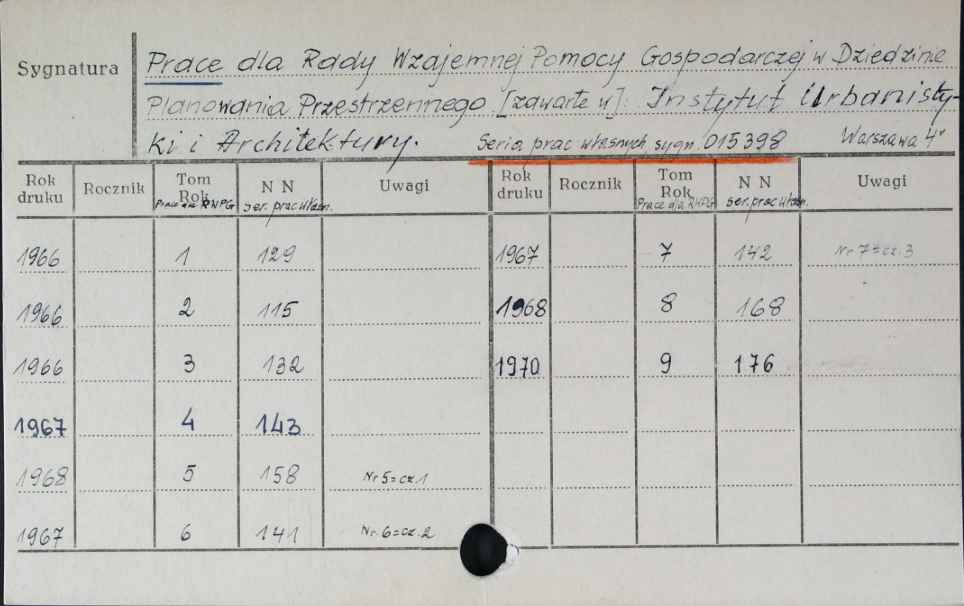 Sygnatura
Prace dla Rady Wzajemnej Pomocy Gospodarczej w Dziedzinie
Planowania Przestrzennego [zawarte w]: Instytut Urbanisty-
ki i Architektury. Seria prac własnych, sygn. 015398 Warszawa 4°
Rok druku Rocznik Tom Rok N N Uwagi Rok druku Rocznik Tom Rok N N Uwagi
Prace dla RWPG ser. prac własn. Prace dla RWPG ser. prac własn.
1966 1 129 1967 7 142 Nr 7=cz. 3
1966 2 115 1968 8 168
1966 3 132 1970 9 176
1967 4 143
1968 5 158 Nr 5=cz. 1
1967 6 141 Nr. 6=cz. 2